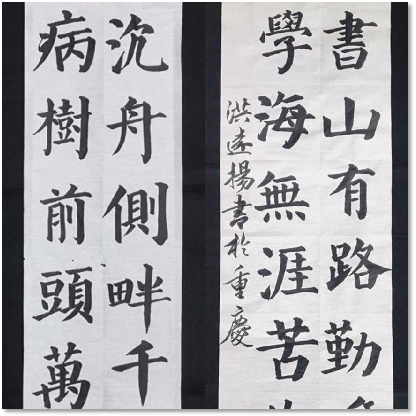 書山有路勤
學海無涯苦
洪遠揚書於重慶
沉舟側畔千
病樹前頭萬